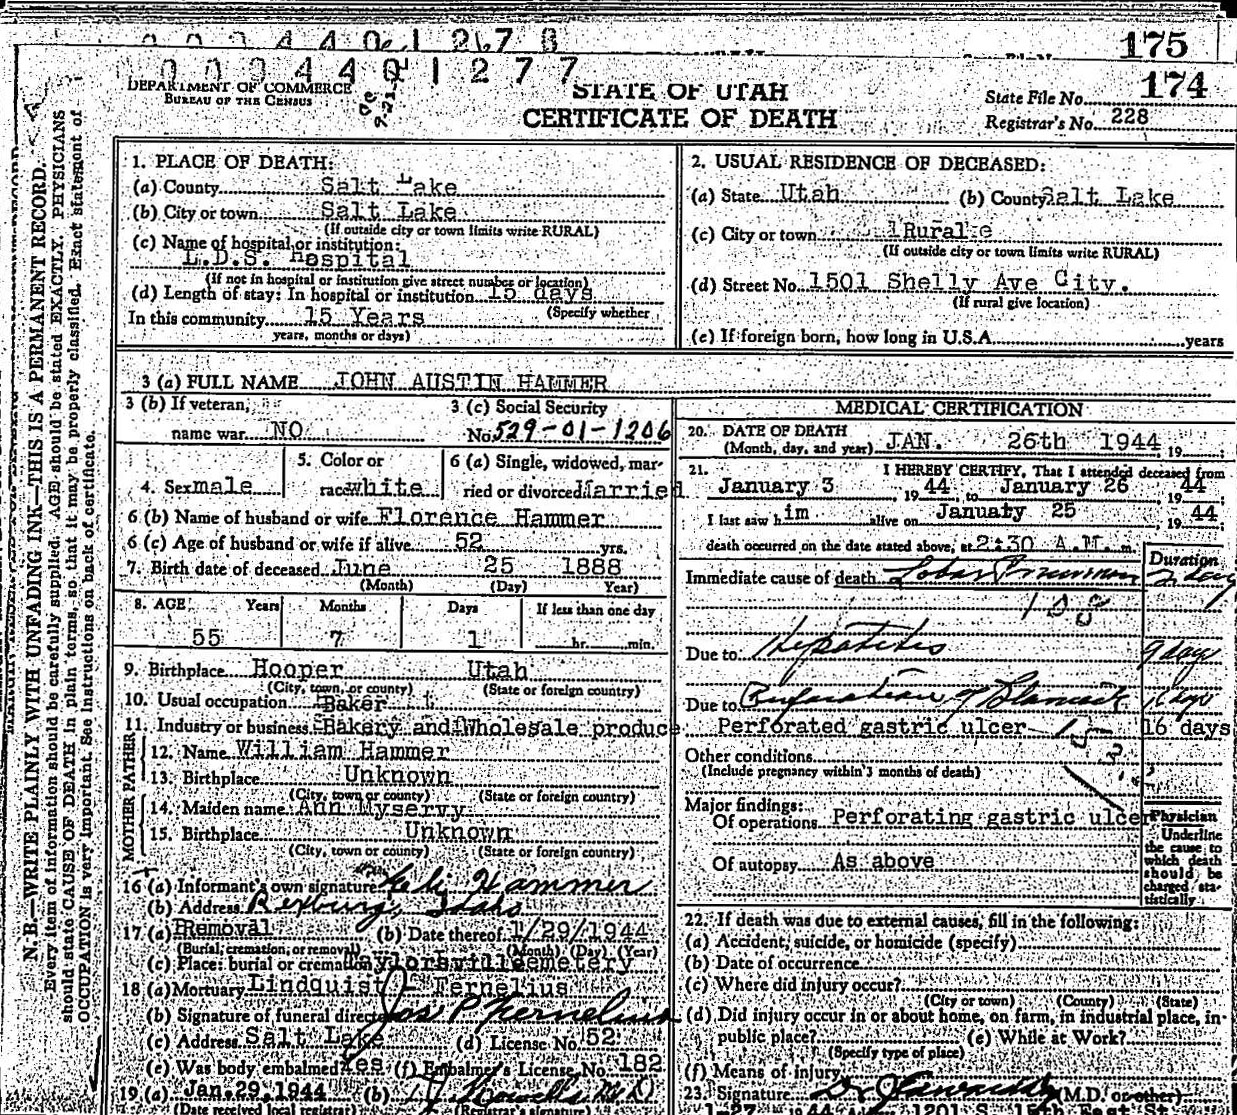 0 0 3 4 4 0 1 2 6 7 8
175
0 0 3 4 4 0 1 2 7 7
174
DEPARTMENT OF COMMERCE
BUREAU OF THE CENSUS
STATE OF UTAH
CERTIFICATE OF DEATH
State File No.
Registrar's No. 228
N. B.—WRITE PLAINLY WITH UNFADING INK—THIS IS A PERMANENT RECORD.
Every item of information should be carefully supplied. AGE should be stated EXACTLY. PHYSICIANS
should state CAUSE OF DEATH in plain terms, so that it may be properly classified. Exact statement of
OCCUPATION is very important. See instructions on back of certificate.
1. PLACE OF DEATH:
(a) County Salt Lake
(b) City or town Salt Lake
(If outside city or town limits write RURAL)
(c) Name of hospital or institution:
L.D.S. Hospital
(If not in hospital or institution give street number or location)
(d) Length of stay: In hospital or institution 15 days
(Specify whether
In this community 15 Years
years, months or days)
2. USUAL RESIDENCE OF DECEASED:
(a) State Utah (b) County Salt Lake
(c) City or town Rural
(If outside city or town limits write RURAL)
(d) Street No. 1501 Shelly Ave City.
(If rural give location)
(e) If foreign born, how long in U.S.A. years
3 (a) FULL NAME JOHN AUSTIN HAMMER
3 (b) If veteran, name war NO
3 (c) Social Security No. 529-01-1206
4. Sex male
5. Color or race white
6 (a) Single, widowed, married or divorced Married
6 (b) Name of husband or wife Florence Hammer
6 (c) Age of husband or wife if alive 52 yrs.
7. Birth date of deceased June 25 1888
(Month) (Day) Year)
8. AGE Years Months Days If less than one day
55 7 1 hr. min.
9. Birthplace Hooper Utah
(City, town, or county) (State or foreign country)
10. Usual occupation Baker
11. Industry or business Bakery and Wholesale produce
FATHER
12. Name William Hammer
13. Birthplace Unknown
(City, town or county) (State or foreign country)
MOTHER
14. Maiden name Ann Myservy
15. Birthplace Unknown
(City, town or county) (State or foreign country)
16 (a) Informant's own signature Hammer
(b) Address Rexburg, Idaho
17 (a) Removal (b) Date thereof 1/29/1944
(Burial, cremation, or removal) (Month) (Day) (Year)
(c) Place: burial or cremation Taylorsville Cemetery
18 (a) Mortuary Lindquist - Fernelius
(b) Signature of funeral director Jos P Fernelius
(c) Address Salt Lake (d) License No. 52
(e) Was body embalmed Yes (f) Embalmer's License No. 182
19 (a) Jan. 29, 1944 (b)
(Date received local registrar) (Registrar's signature)
MEDICAL CERTIFICATION
20. DATE OF DEATH
(Month, day, and year) JAN. 26th 1944 19 ;
21. I HEREBY CERTIFY, That I attended deceased from
January 3, 19 44, to January 26, 19 44
I last saw him alive on January 25, 19 44
death occurred on the date stated above, at 2:30 A.M. m.
Duration
Immediate cause of death Lobar Pneumonia 2 days
108
Due to Hepatitis 9 days
Due to Perforation of Stomach
Perforated gastric ulcer 16 days
Other conditions
(Include pregnancy within 3 months of death)
Major findings:
Of operations Perforating gastric ulcer
Of autopsy As above
Physician
Underline
the cause to
which death
should be
charged sta-
tistically.
22. If death was due to external causes, fill in the following:
(a) Accident, suicide, or homicide (specify)
(b) Date of occurrence
(c) Where did injury occur?
(City or town) (County) (State)
(d) Did injury occur in or about home, on farm, in industrial place, in public place? (e) While at Work?
(Specify type of place)
(f) Means of injury
23. Signature (M.D. or other)
1-27 1944 1201 S. 15th East S